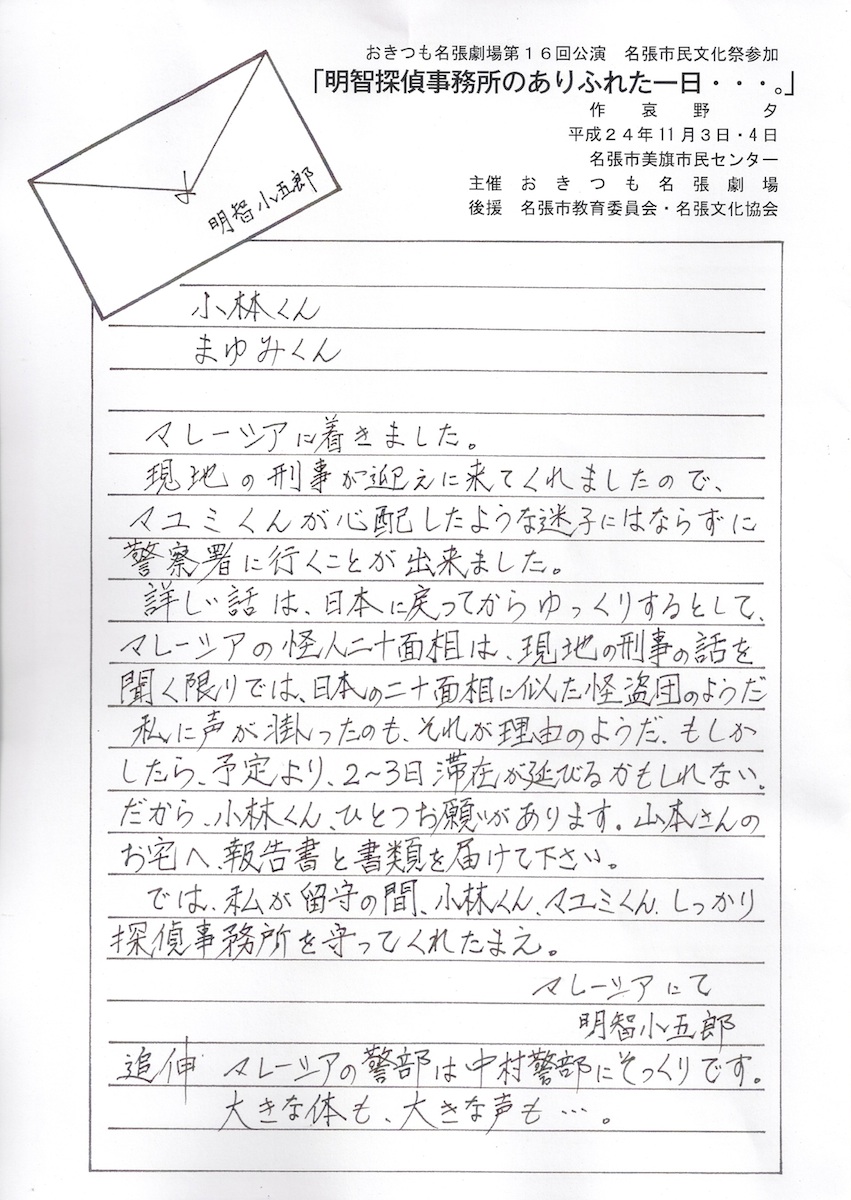 おきつも名張劇場第１６回公演　名張市民文化祭参加
「明智探偵事務所のありふれた一日・・・。」
作　哀　野　　夕
平成２４年１１月３日・４日
名張市美旗市民センター
主催　お き つ も 名 張 劇 場
後援　名張市教育委員会・名張文化協会
明智小五郎
小林くん
まゆみくん
マレーシアに着きました。
現地の刑事が迎えに来てくれましたので、
マユミくんが心配したような迷子にはならずに
警察署に行くことが出来ました。
詳しい話は、日本に戻ってからゆっくりするとして、
マレーシアの怪人二十面相は、現地の刑事の話を
聞く限りでは、日本の二十面相に似た怪盗団のようだ
私に声が掛ったのも、それが理由のようだ、もしか
したら、予定より、２〜３日滞在が延びるかもしれない。
だから、小林くん、ひとつお願いがあります。山本さんの
お宅へ、報告書と書類を届けて下さい。
では、私が留守の間、小林くん、マユミくん、しっかり
探偵事務所を守ってくれたまえ。
マレーシアにて
明智小五郎
追伸　マレーシアの警部は中村警部にそっくりです。
大きな体も、大きな声も…。